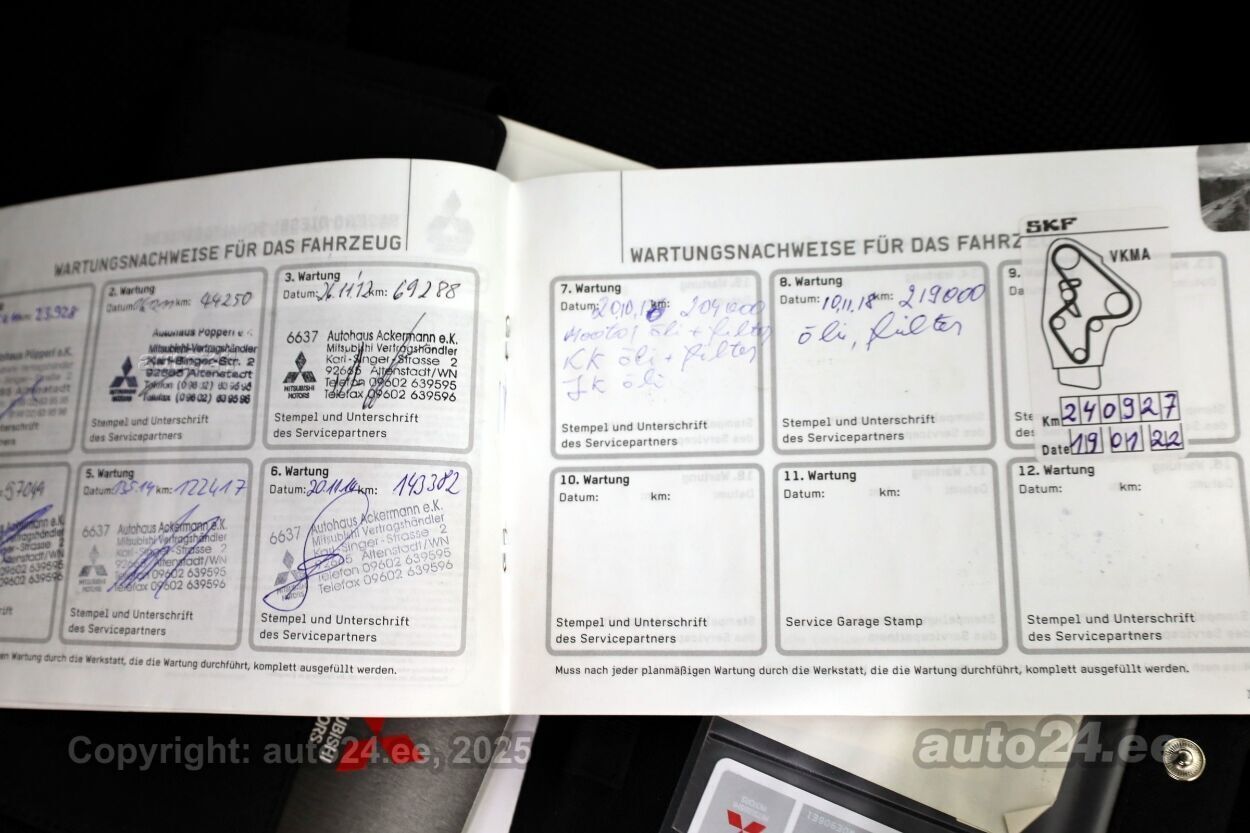 WARTUNGSNACHWEISE FÜR DAS FAHRZEUG
km: 23.928
2. Wartung
Datum: km: 44250
Autohaus Pöpperl e.K.
Mitsubishi-Vertragshändler
Karl-Singer-Str. 2
92665 Altenstadt
Telefon (0 96 02) 63 95 95
Telefax (0 96 02) 63 95 96
MITSUBISHI
MOTORS
Stempel und Unterschrift
des Servicepartners
3. Wartung
Datum: 26.11.12 km: 69288
6637 Autohaus Ackermann e.K.
Mitsubishi Vertragshändler
Karl-Singer-Strasse 2
92665 Altenstadt/WN
Telefon 09602 639595
Telefax 09602 639596
MITSUBISHI
MOTORS
Stempel und Unterschrift
des Servicepartners
97049
5. Wartung
Datum: 13.5.14 km: 122417
6637 Autohaus Ackermann e.K.
Mitsubishi Vertragshändler
Karl-Singer-Strasse 2
92665 Altenstadt/WN
Telefon 09602 639595
Telefax 09602 639596
Stempel und Unterschrift
des Servicepartners
6. Wartung
Datum: 20.11.14 km: 143382
6637 Autohaus Ackermann e.K.
Mitsubishi Vertragshändler
Karl-Singer-Strasse 2
92665 Altenstadt/WN
Telefon 09602 639595
Telefax 09602 639596
Stempel und Unterschrift
des Servicepartners
en Wartung durch die Werkstatt, die die Wartung durchführt, komplett ausgefüllt werden.
WARTUNGSNACHWEISE FÜR DAS FAHRZ
7. Wartung
Datum: 20.10. km: 204000
Mootor õli + filter
KK õli + filter
JK õli
Stempel und Unterschrift
des Servicepartners
8. Wartung
Datum: 10.11.18 km: 219000
õli, filter
Stempel und Unterschrift
des Servicepartners
9.
SKF
VKMA
Km 240927
Date 19 01 22
10. Wartung
Datum: km:
Stempel und Unterschrift
des Servicepartners
11. Wartung
Datum: km:
Service Garage Stamp
12. Wartung
Datum: km:
Stempel und Unterschrift
des Servicepartners
Muss nach jeder planmäßigen Wartung durch die Werkstatt, die die Wartung durchführt, komplett ausgefüllt werden.
Copyright: auto24.ee, 2025
auto24.ee